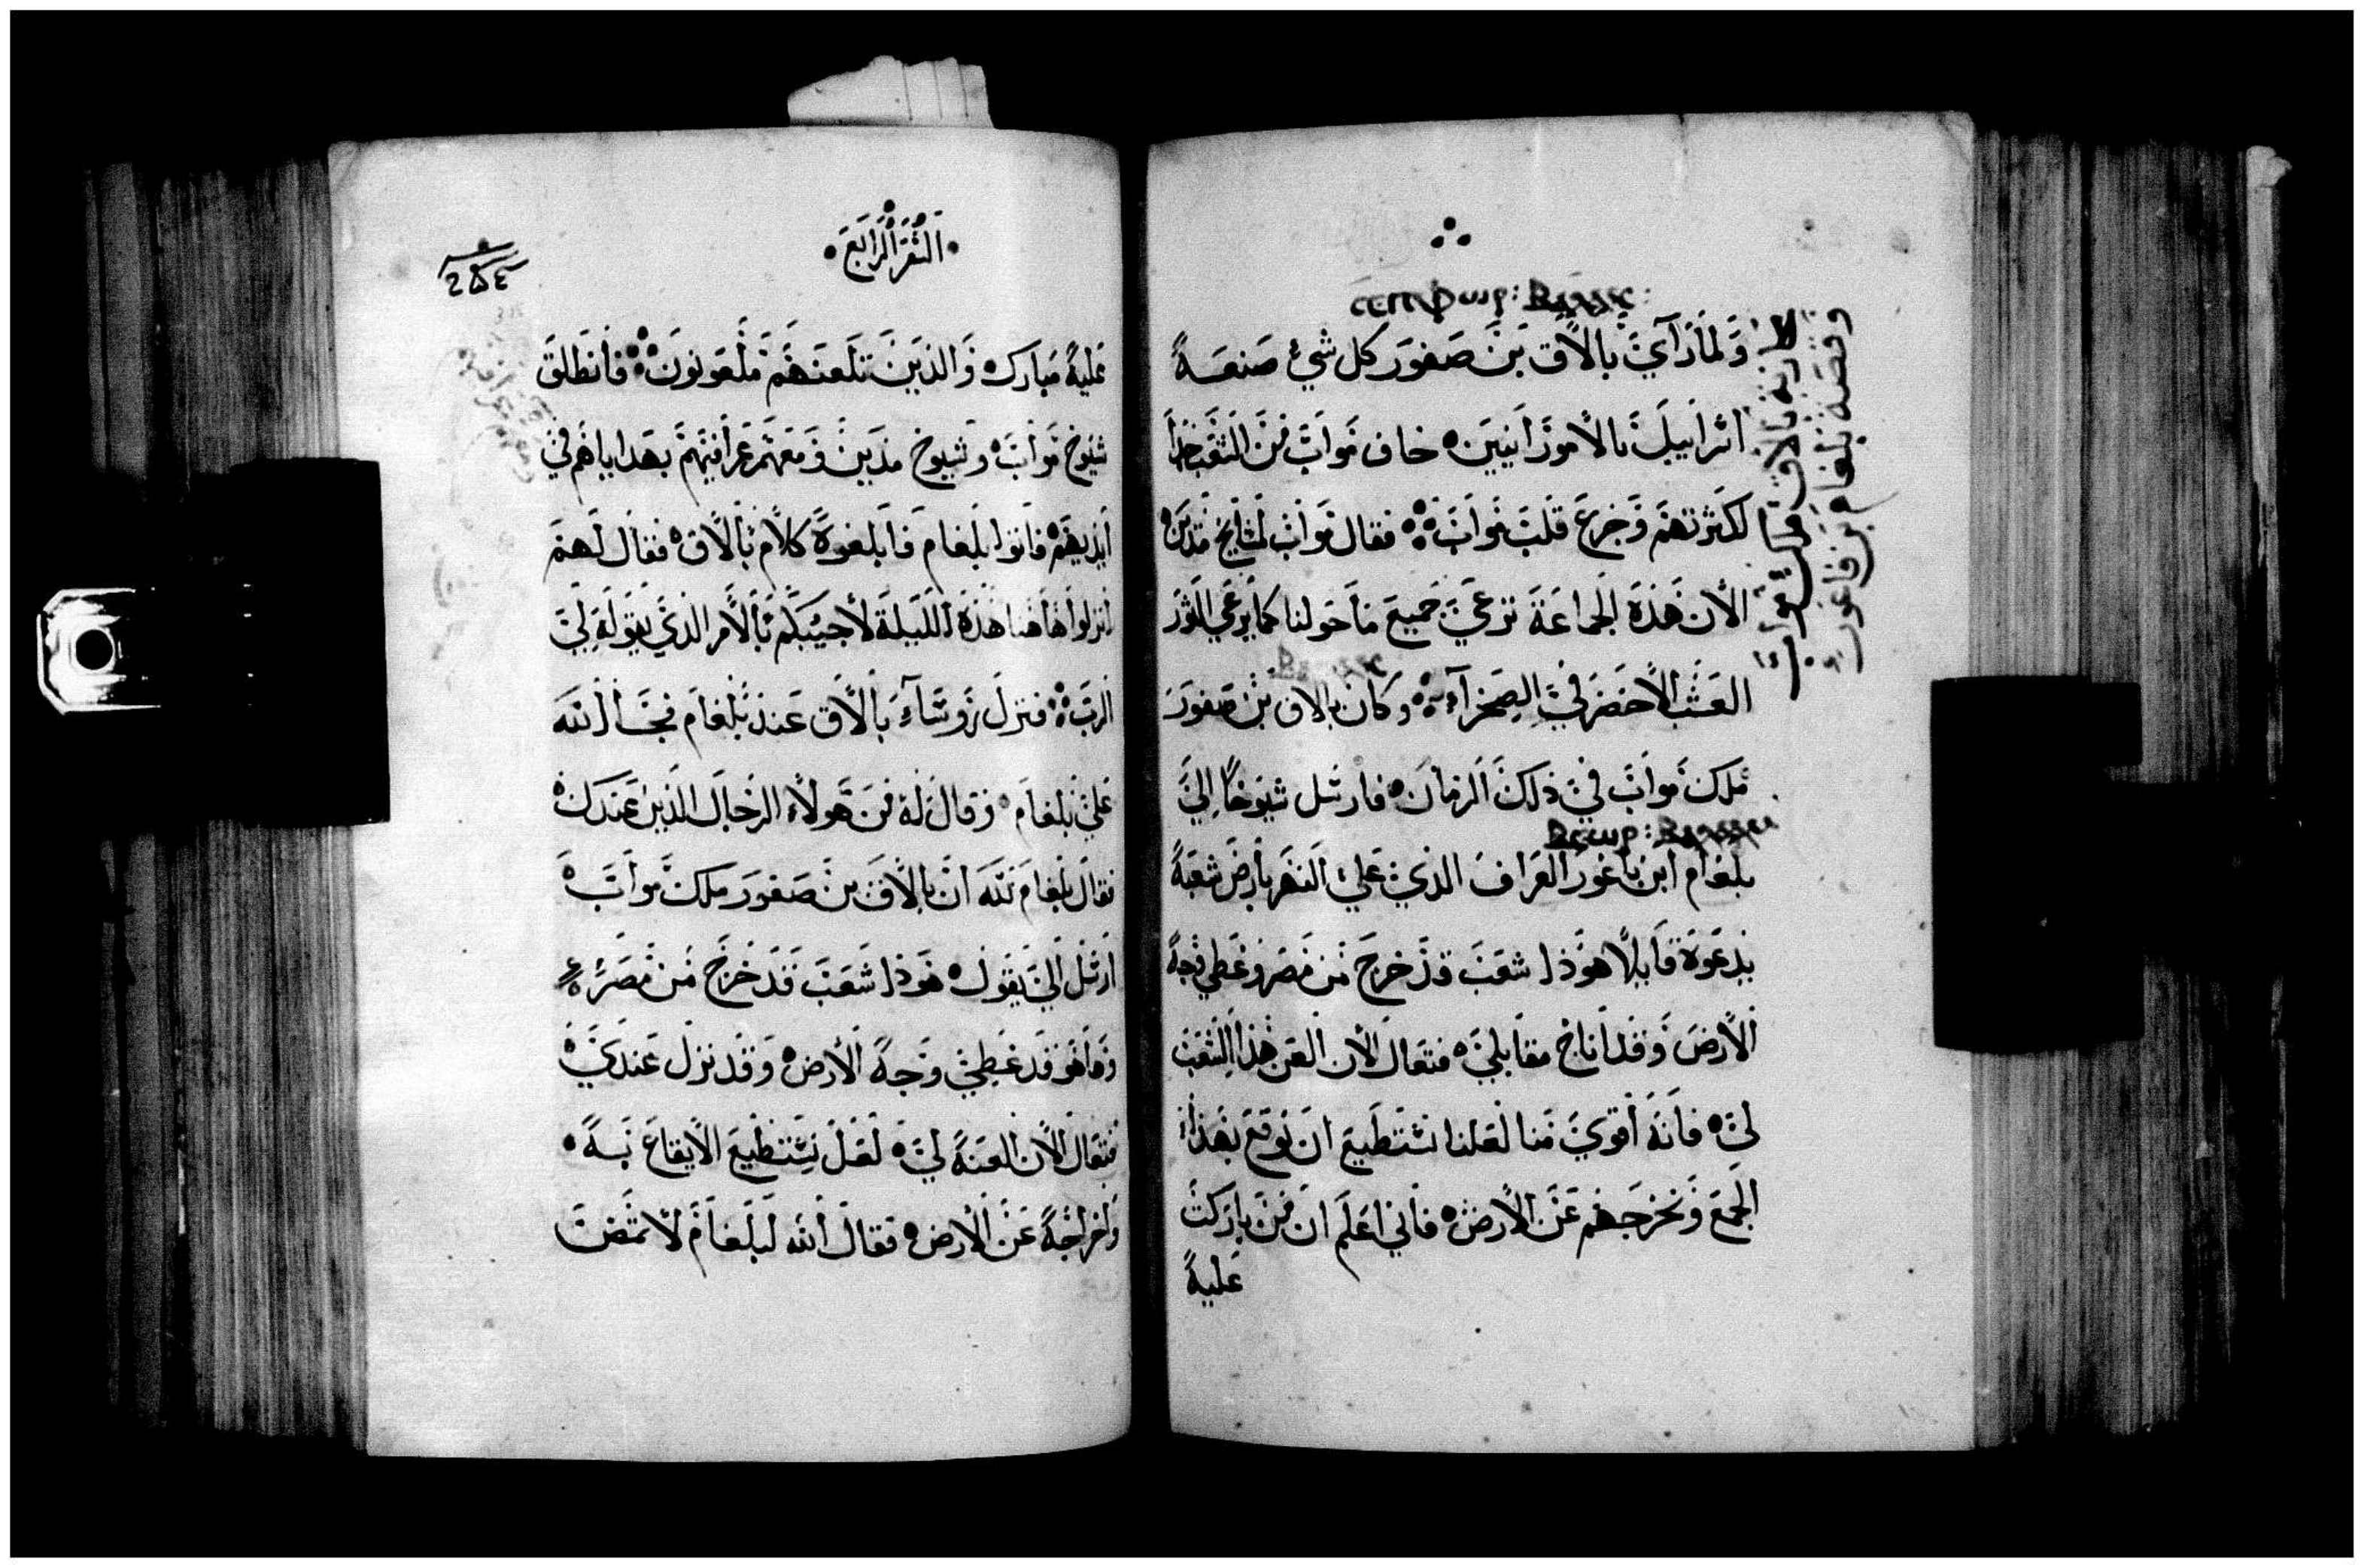 ولما رآي بالاق بن صفور كل شيء صنعه
اسراييل بالامورانيين خاف مواب من الشعب جدا
لكثرتهم وجزع قلب مواب فقال مواب لمشايخ مدين
الان هذه الجماعة ترعي جميع ما حولنا كما يرعي الثور
العشب الاخضر في الصحرآء وكان بالاق بن صفور
ملك مواب في ذلك الزمان فارسل شيوخا الي
بلعام ابن باعور العراف الذي علي النهر بارض شعبه
يدعوه قايلا هوذا شعب قد خرج من مصر وغطي وجه
الارض وقد اناخ مقابلي فتعال الان العن هذا الشعب
لي فانه أقوي منا لعلنا نستطيع ان نوقع بهذا
الجمع ونخرجهم عن الارض فاني اعلم ان من باركت
عليه
السفر الرابع
عليه مبارك والذين تلعنهم ملعونون فانطلق
شيوخ مواب وشيوخ مدين ومعهم عرافيتهم بهداياهم في
أيديهم فاتوا بلعام فابلغوه كلام بالاق فقال لهم
انزلوا هاهنا هذه الليلة لأجيبكم بالامر الذي يقوله لي
الرب فنزل روساء بالاق عند بلعام فجا الله
علي بلعام وقال له من هولاء الرجال الذين عندك
فقال بلعام لله ان بالاق بن صفور ملك مواب
ارسل الي يقول هوذا شعب قد خرج من مصر
وها هو قد غطي وجه الارض وقد نزل عندي
فتعال الان العنه لي لعل نستطيع الايقاع به
واخراجه عن الارض فقال الله لبلعام لا تمض